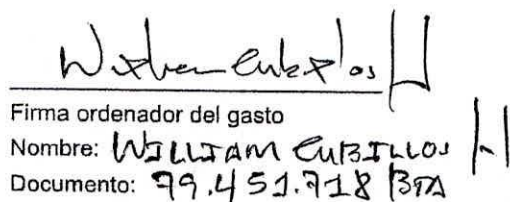 Firma ordenador del gasto
Nombre: WILLIAM CUBILLOS H
Documento: 79.451.718 BTA